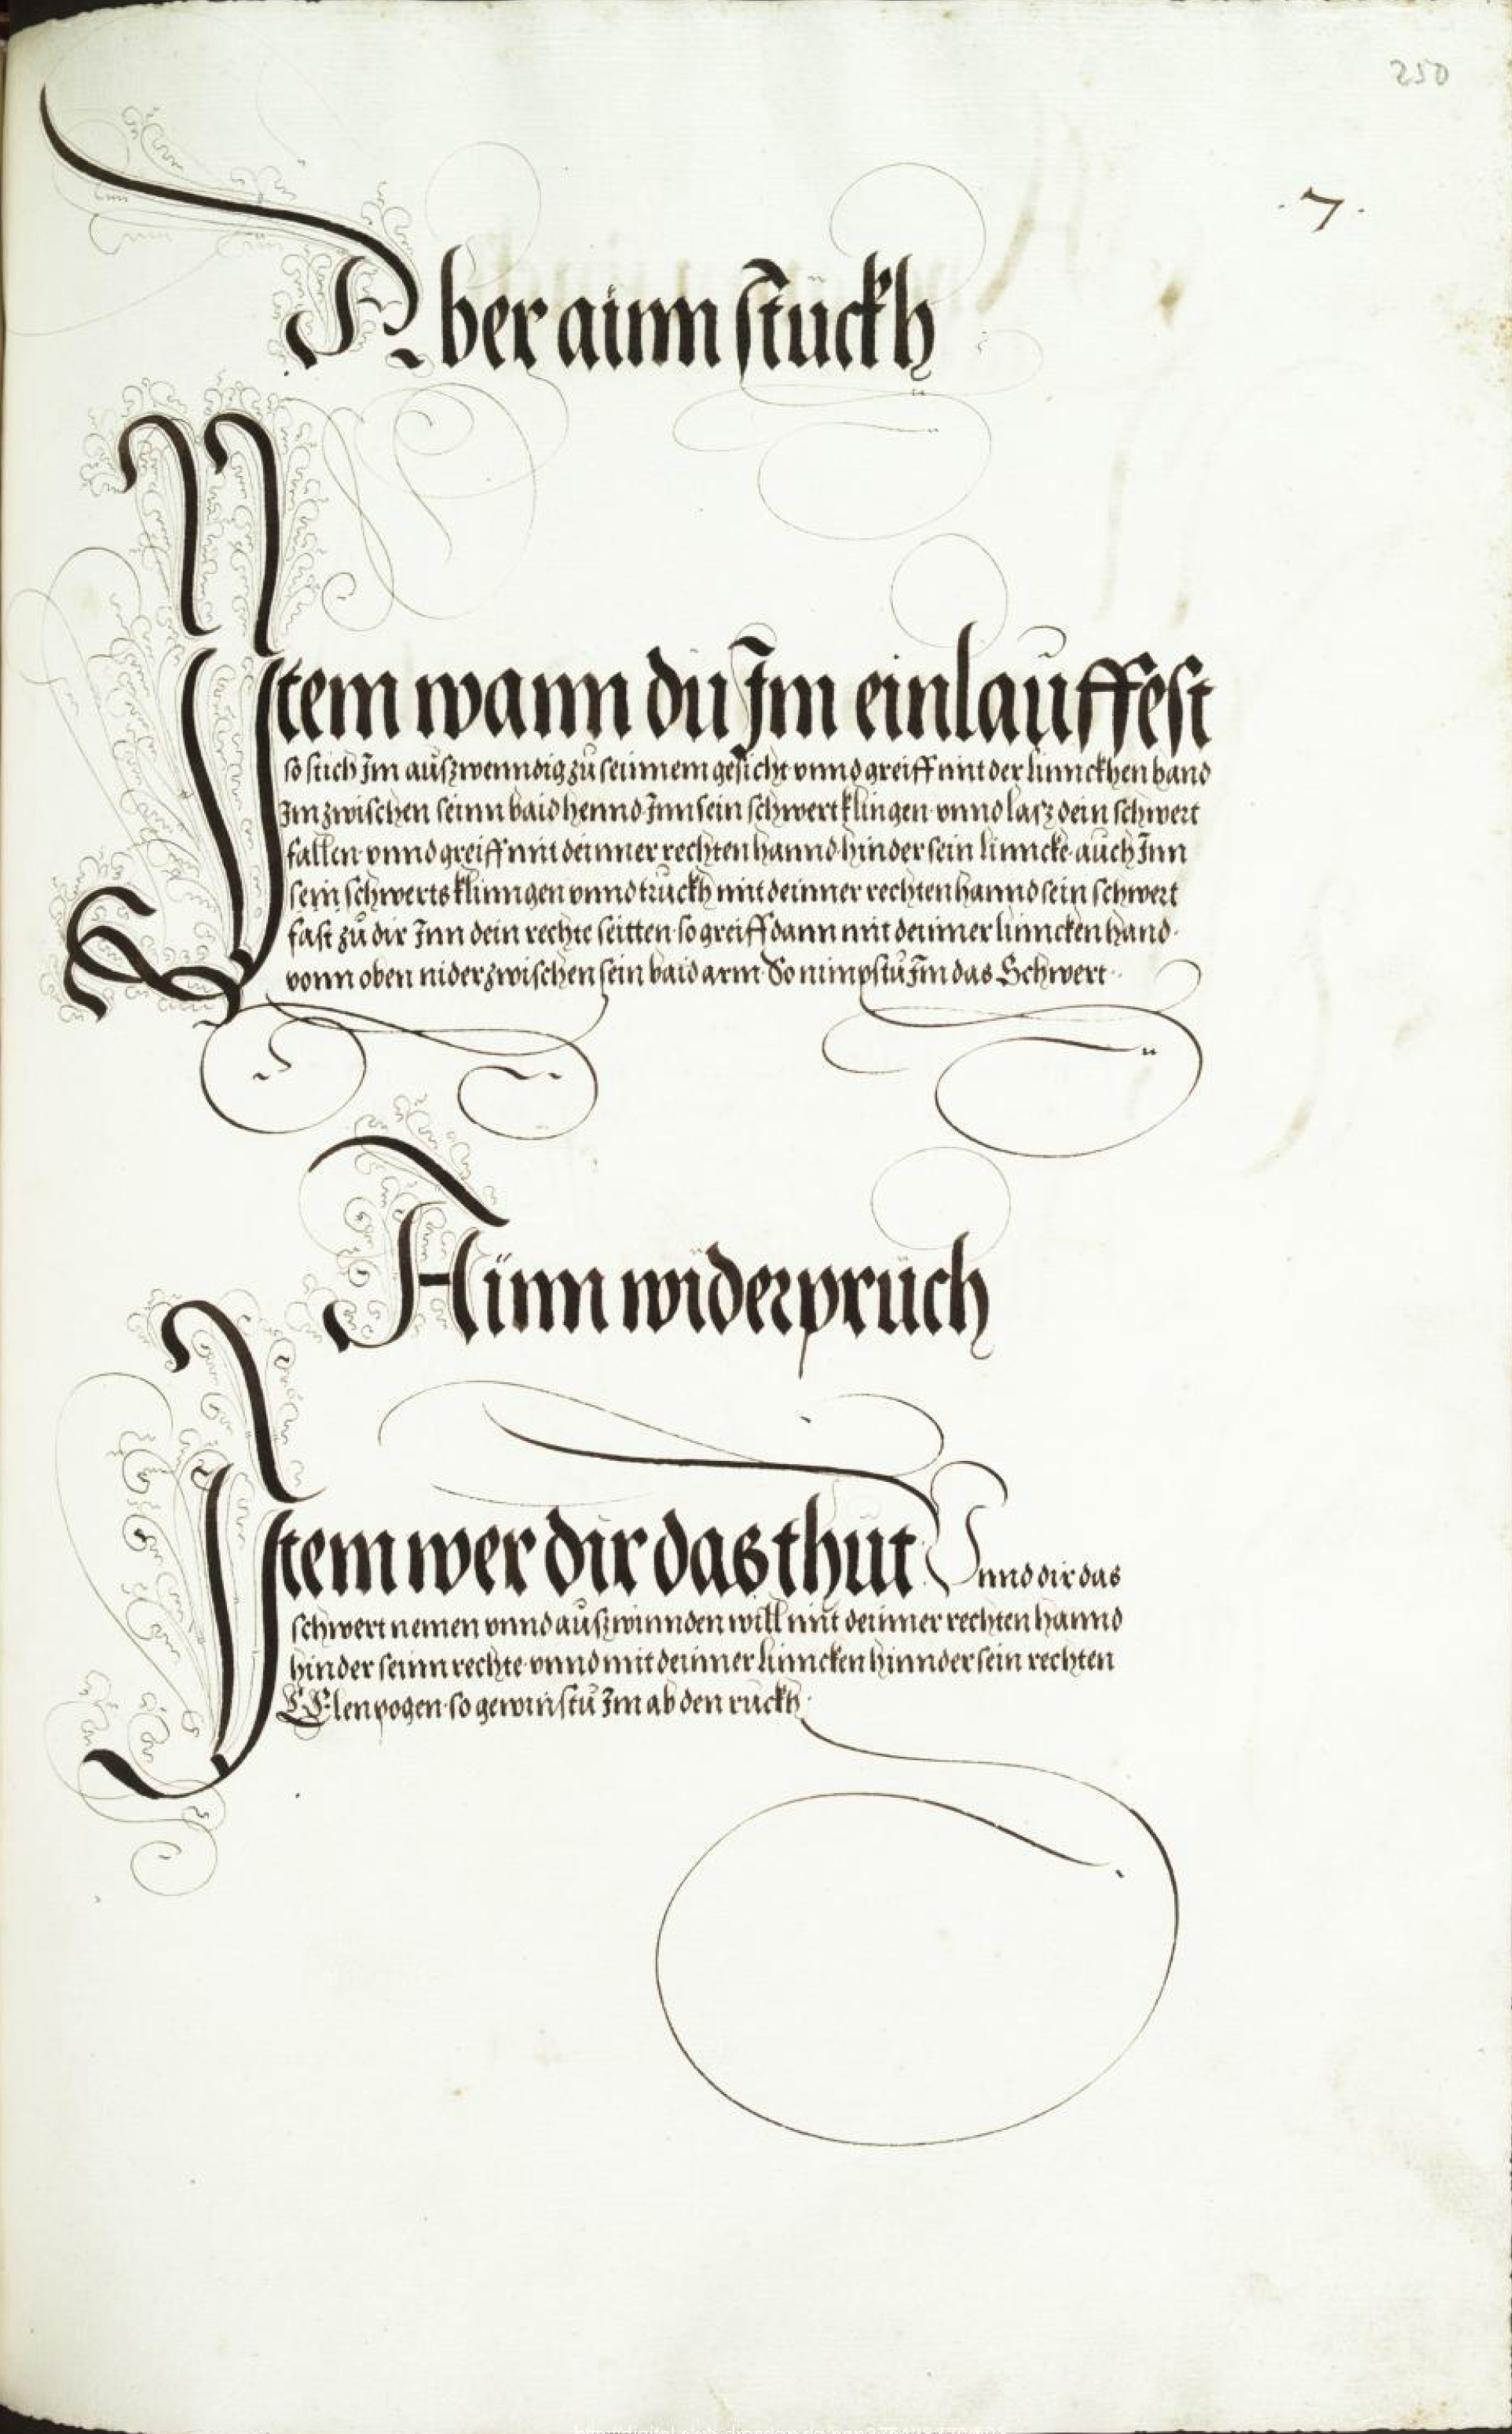 250
·7·
Aber ainn stuckh
Item wann du Im einlauffest
so stich Im auszwenndig zu seinnem gesicht vnnd greiff mit der linnckhen hand
Im zwischen seinn baid hennd Inn sein schwertklingen vnnd lasz dein schwert
fallen vnnd greiff mit deinner rechten hannd hinder sein linncke auch Inn
sein schwerts klinngen vnnd truckh mit deinner rechten hannd sein schwert
fast zu dir Inn dein rechte seitten so greiff dann mit deinner linncken hand
vonn oben nider zwischen sein baid arm So nimpstu Im das Schwert
Ainn widerpruch
Item wer dir das thut Vnnd dir das
schwert nemen vnnd auszwinnden will mit deinner rechten hannd
hinder seinn rechte vnnd mit deinner linncken hinnder sein rechten
Elenpogen so gewinstu Im ab den ruckh